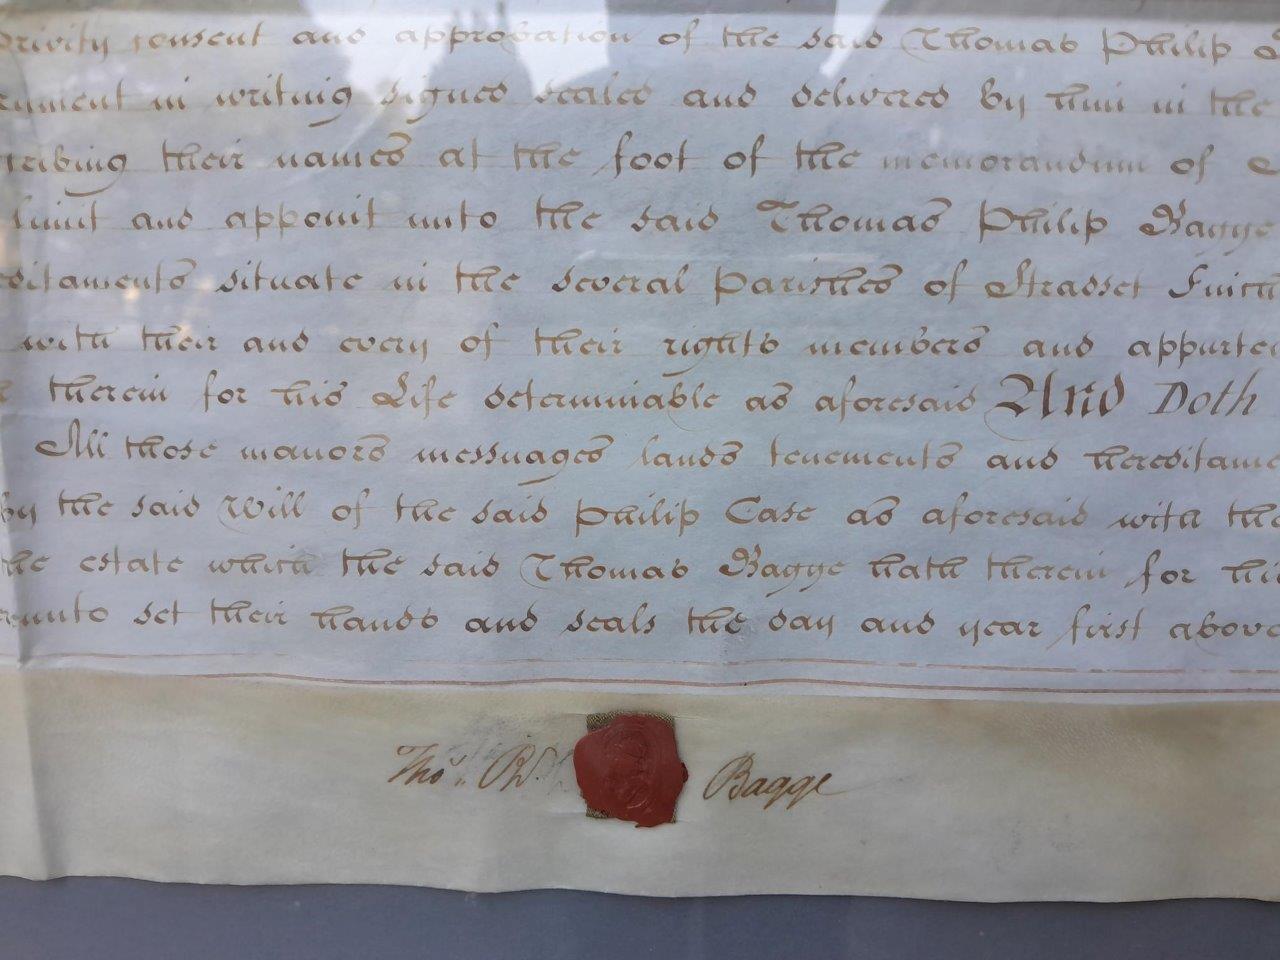 privity consent and approbation of the said Thomas Philip
rument in writing signed sealed and delivered by him in the
cribing their names at the foot of the memorandum of
limit and appoint unto the said Thomas Philip Bagge
editaments situate in the several Parishes of Stradset Finch
with their and every of their rights members and appurten
therein for his Life determinable as aforesaid And Doth
All those manors messuages lands tenements and hereditame
by the said Will of the said Philip Case as aforesaid with the
the estate which the said Thomas Bagge hath therein for his
reunto set their hands and seals the day and year first above
Thos. Ph. Bagge